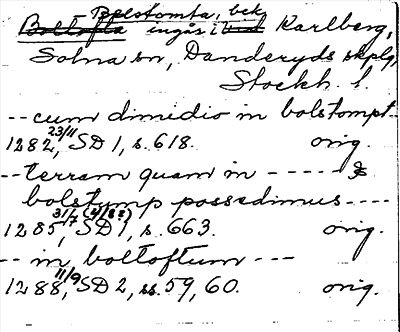 Bolstomta, bek.
Boltofta ingår i vid Karlberg,
Solna sn, Danderyds skplg,
Stockh. l.
-- cum dimidio in bolstompt--
1282 23/11, SD 1, s. 618. orig.
-- terram quam in -----
bolstump possedimus ----
1285 31/7 (2/8?), SD 1, s. 663. orig.
-- in boltoftum ---
1288 11/9, SD 2, ss. 59, 60. orig.